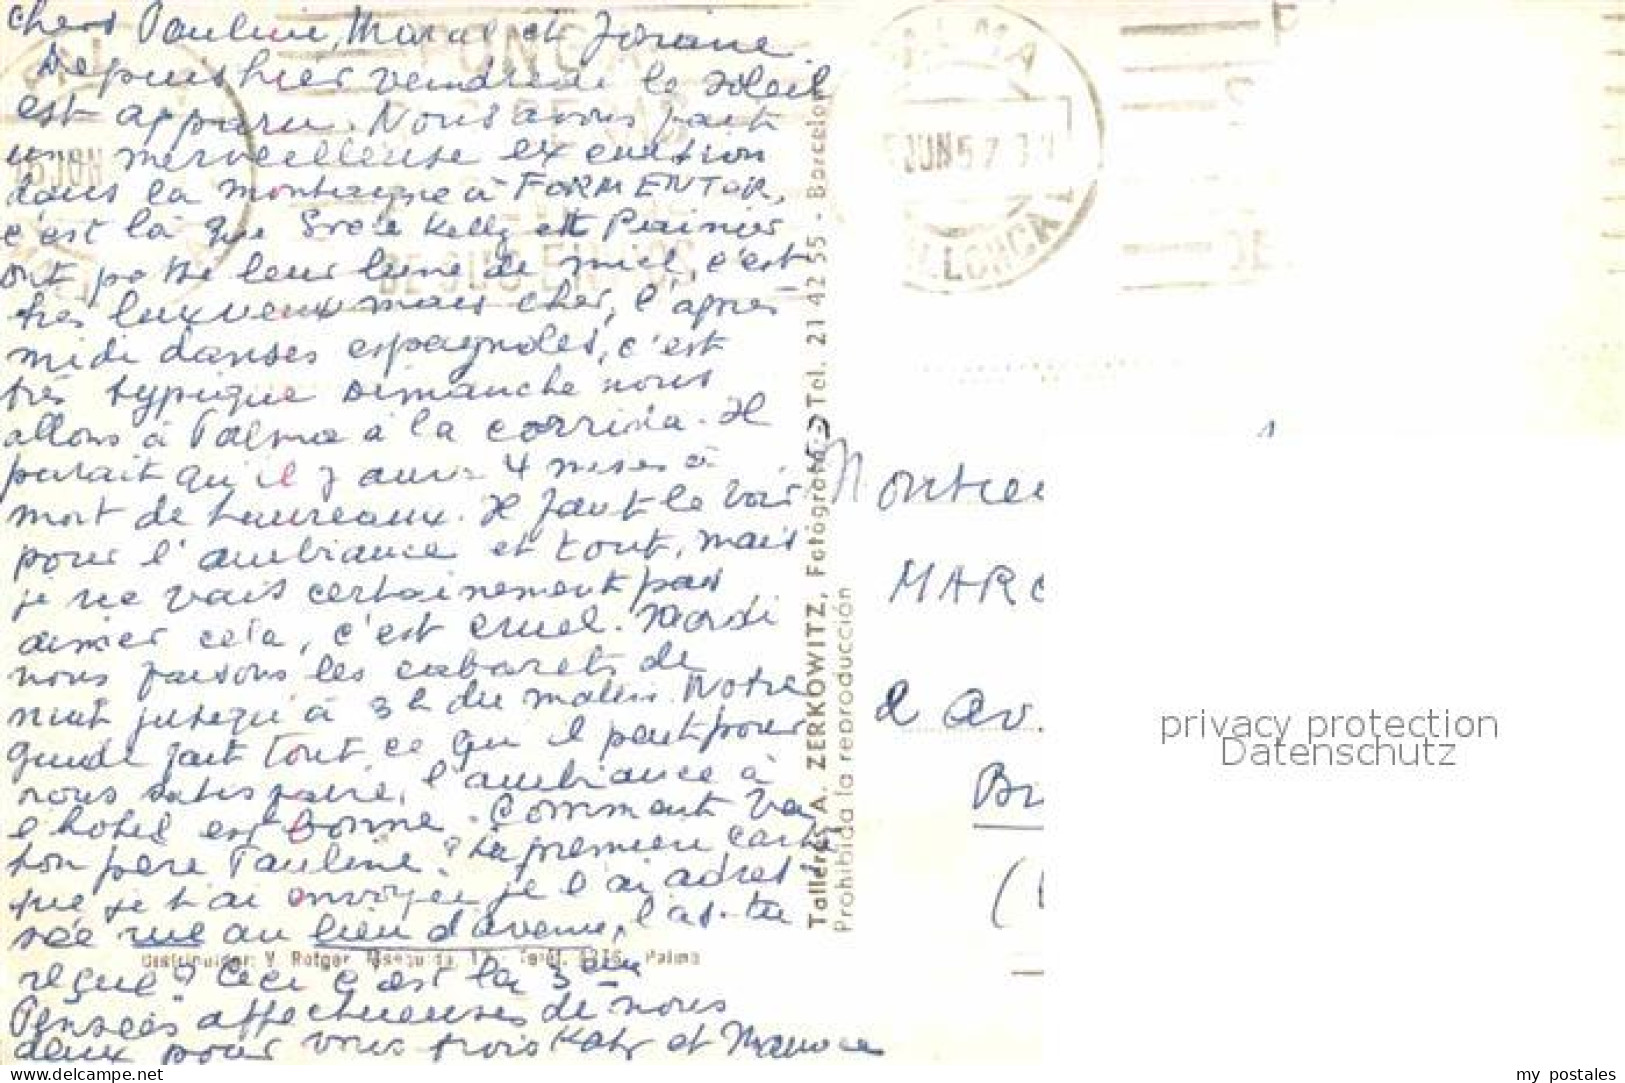 Chers Pauline, Marcel et Josiane
Depuis hier vendredi le soleil
est apparu. Nous avons fait
une merveilleuse excurtion
dans la montagne à FORMENTOR,
c'est là que Grace Kelly et Rainier
ont passé leur lune de miel, c'est
très luxueux mais cher, l'après
midi danses espagnoles, c'est
très typique Dimanche nous
allons à Palma à la corrida. Il
parait qu'il y aura 4 mises à
mort de taureaux. Il faut le voir
pour l'ambiance et tout, mais
je ne vais certainement pas
aimer cela, c'est cruel. Mardi
nous faisons les cabarets de
nuit jusqu'à 3 h du matin. Notre
guide fait tout ce qu'il peut pour
nous satisfaire, l'ambiance à
l'hotel est bonne. Comment va
ton père Pauline? La première carte
que je t'ai envoyée je l'ai adres
sée rue au lieu d'avenue, l'as-tu
reçue? Ceci c'est la 3ème
Pensées affectueuses de nous
deux pour vous trois Katy et Maurice
Distribuidor: V. Rotger, - Teléf. - Palma
Talleres A. ZERKOWITZ, Fotógrafo - Tel. 21 42 55 - Barcelona
Prohibida la reproducción
PALMA
JUN 57
MALLORCA
MARC
av.
privacy protection
Datenschutz
ID-Nr: delcampe.net
my postales